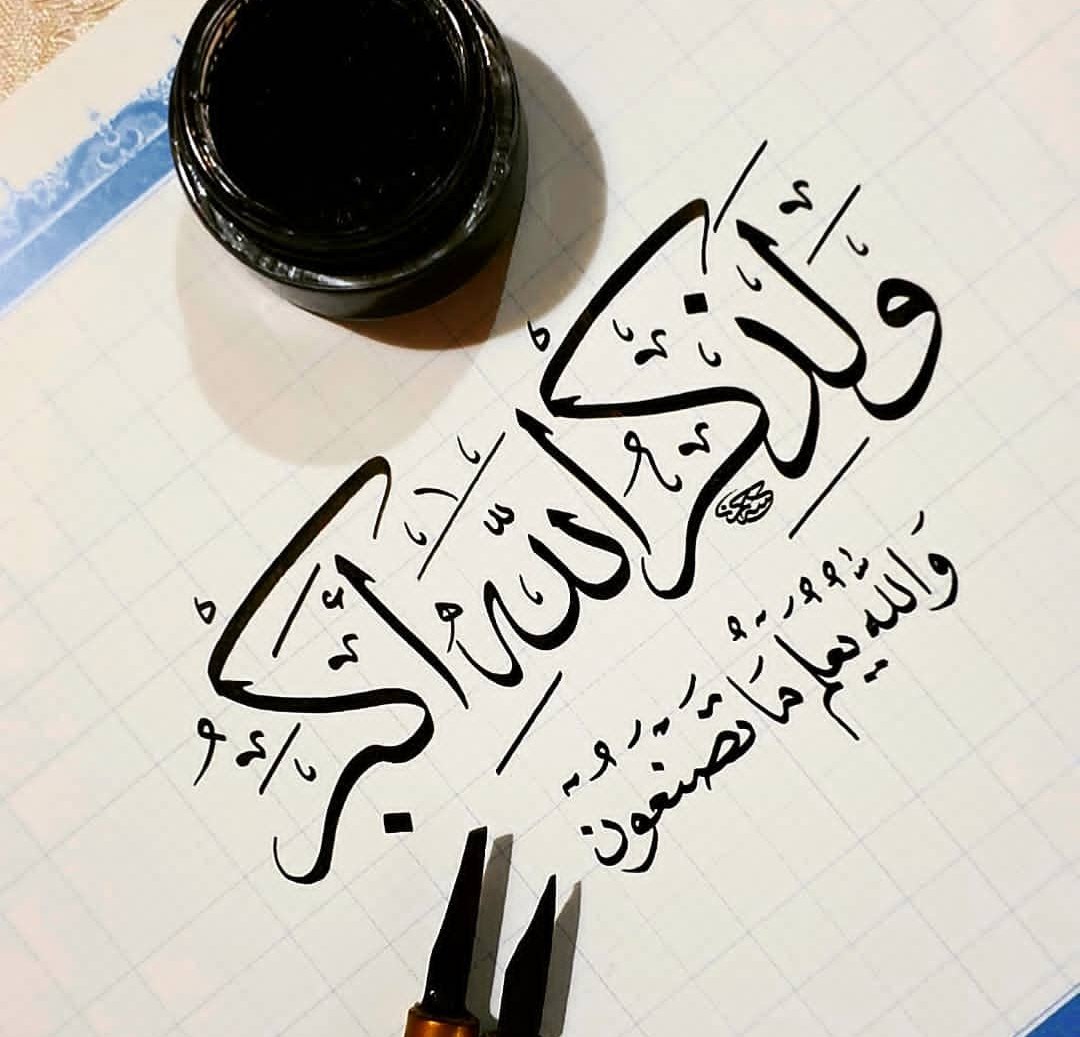 وَلَذِكْرُ اللّٰهِ أَكْبَرُ
وَاللّٰهُ يَعْلَمُ مَا تَصْنَعُونَ